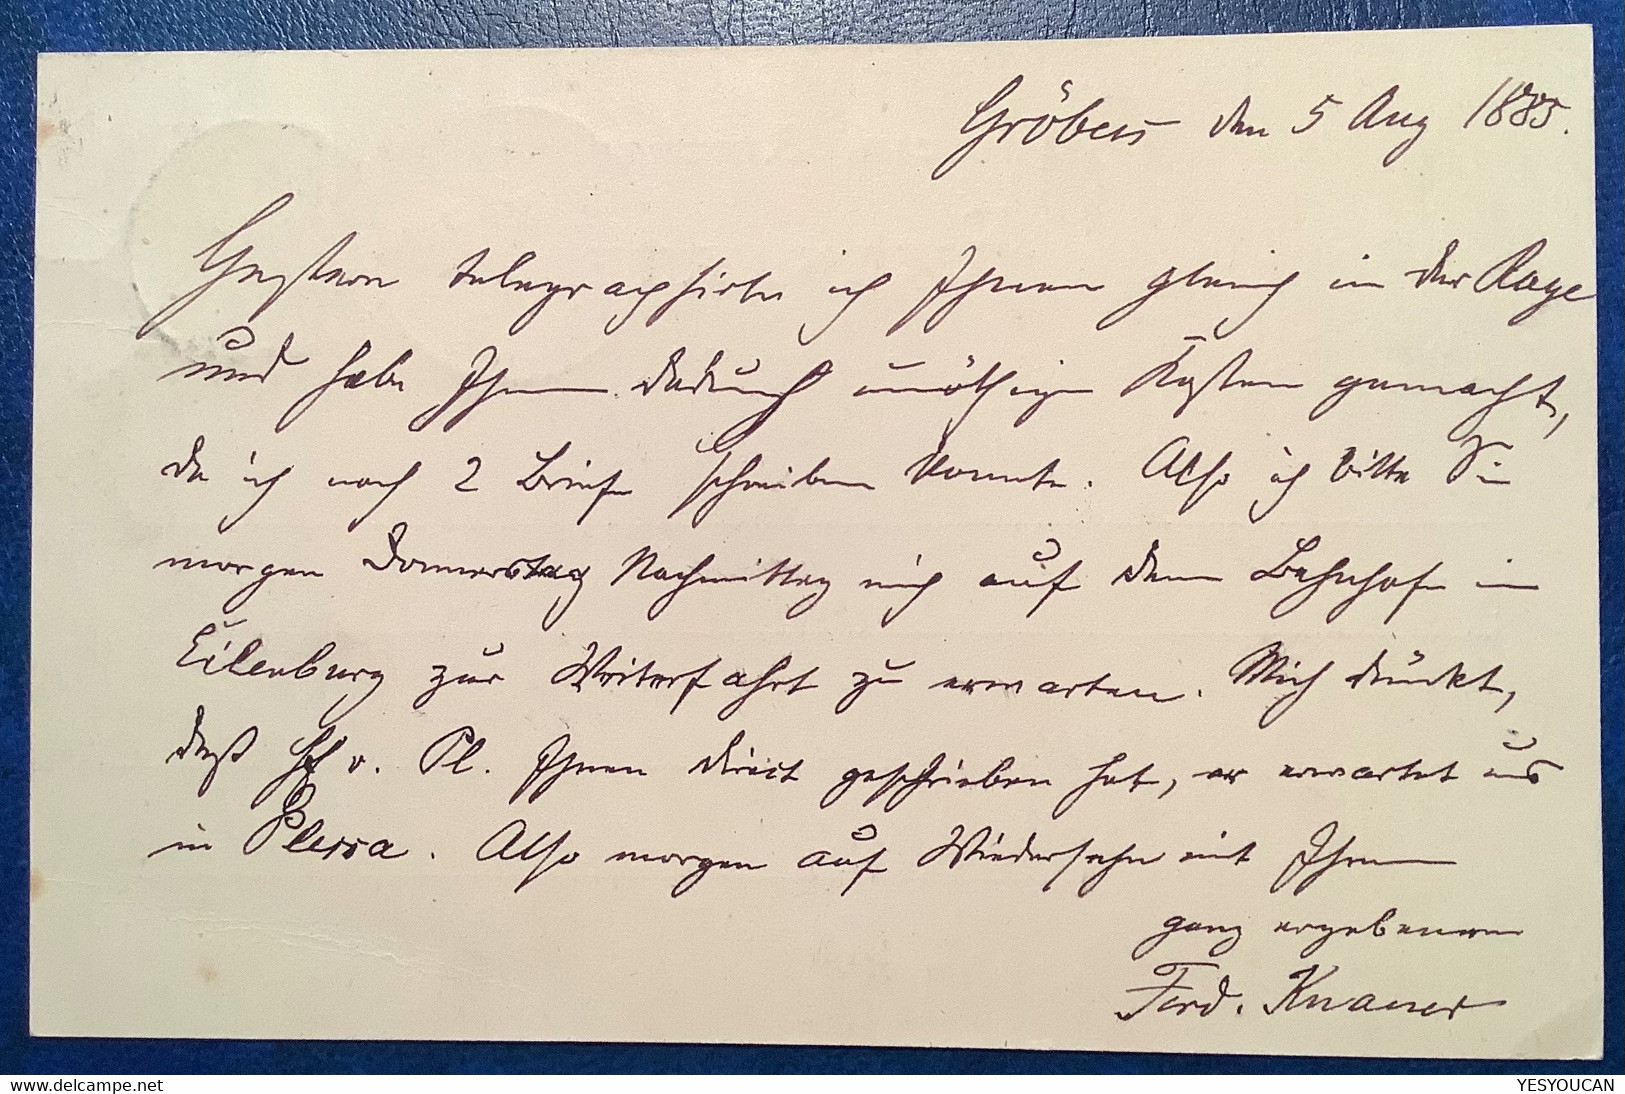 Gröbers den 5 Aug 1885.
Gestern telegraphirte ich Ihnen gleich in der Rage
und habe Ihnen dadurch unöthige Kosten gemacht,
da ich noch 2 Briefe schreiben konnte. Also ich bitte Sie
morgen Donnerstag Nachmittag mich auf dem Bahnhofe in
Eilenburg zur Weiterfahrt zu erwarten. Mich dünkt,
daß H v. Pl. Ihnen direct geschrieben hat, er erwartet uns
in Plessa. Also morgen auf Wiedersehn mit Ihnen
ganz ergebenem
Ferd. Knauer
YESYOUCAN
delcampe.net